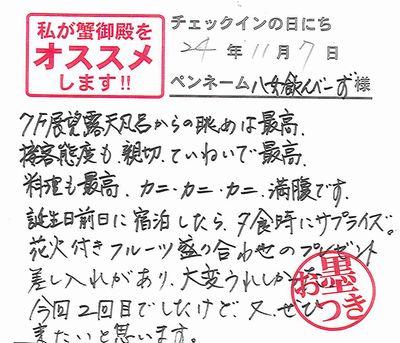 私が蟹御殿を
オススメ
します!!
チェックインの日にち
24年11月7日
ペンネーム 八女飲んべーず 様
7F展望露天風呂からの眺めは最高、
接客態度も、親切、ていねいで最高、
料理も最高、カニ・カニ・カニ、満腹です。
誕生日前日に宿泊したら、夕食時にサプライズ。
花火付きフルーツ盛り合わせのプレゼント
差し入れがあり、大変うれしか
今回2回目でしたけど、又、ぜひ
来たいと思います。
お墨つき